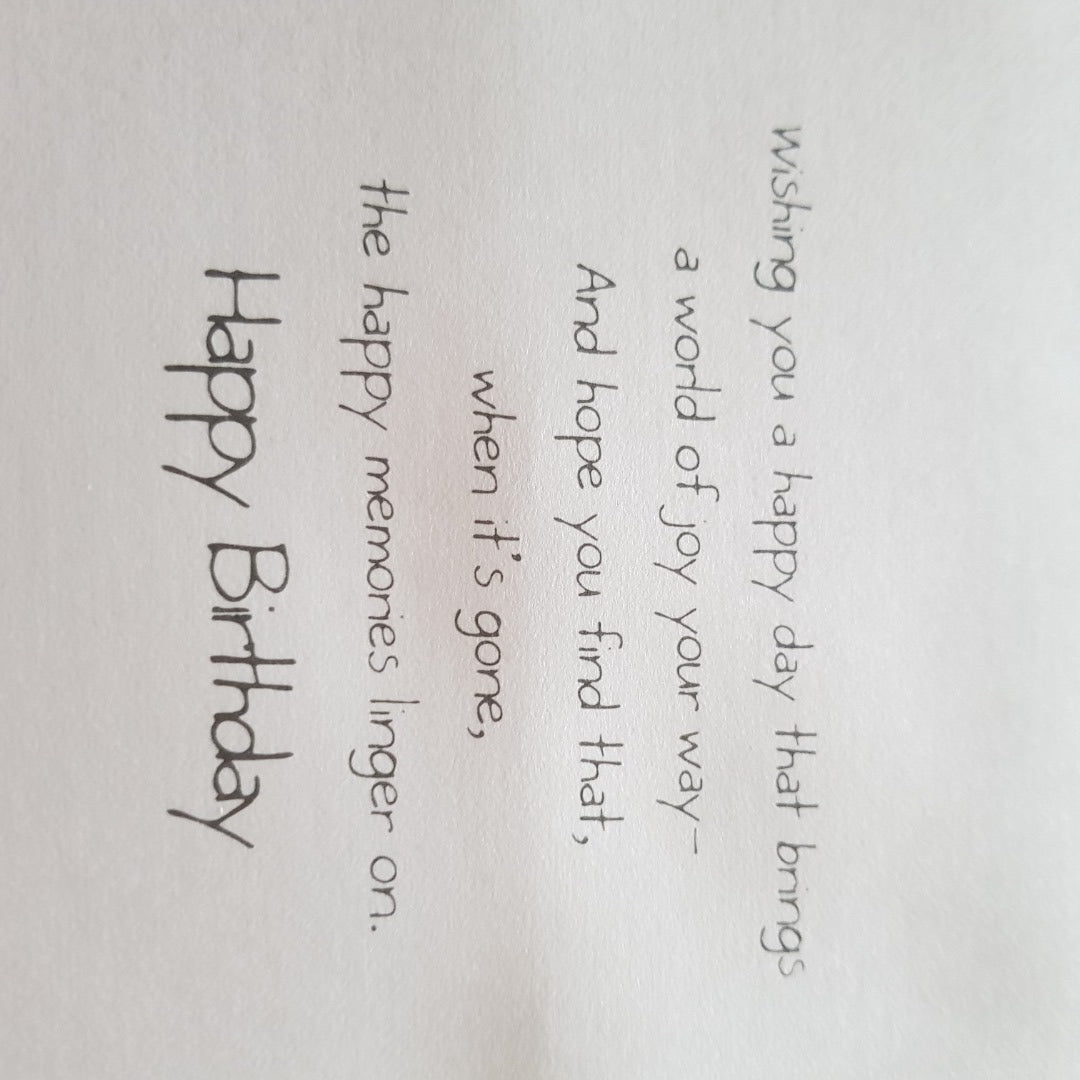 wishing you a happy day that brings
a world of joy your way-
And hope you find that,
when it's gone,
the happy memories linger on.
Happy Birthday